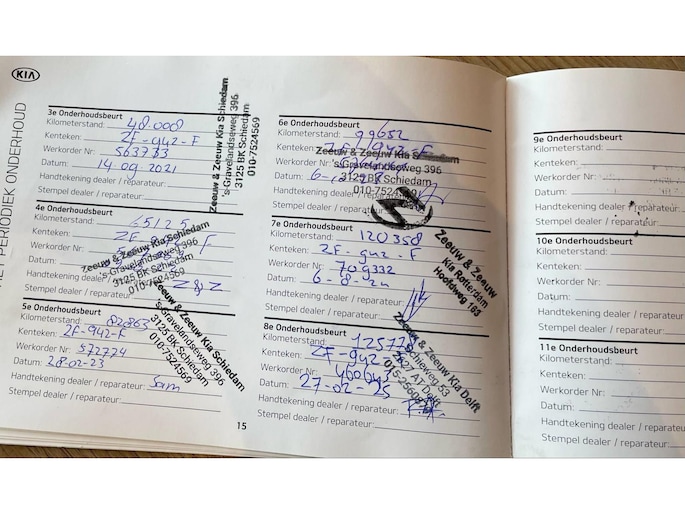 KIA
HET PERIODIEK ONDERHOUD
3e Onderhoudsbeurt
Kilometerstand: 48.000
Kenteken: ZF-942-F
Werkorder Nr: 563733
Datum: 14 09 2021
Handtekening dealer / reparateur:
Stempel dealer / reparateur:
Zeeuw & Zeeuw Kia Schiedam
's-Gravelandseweg 396
3125 BK Schiedam
010-7524569
4e Onderhoudsbeurt
Kilometerstand:
Kenteken: ZF
Werkorder Nr:
Datum:
Handtekening dealer
Stempel dealer / reparateur: Z&Z
Zeeuw & Zeeuw Kia Schiedam
's-Gravelandseweg 396
3125 BK Schiedam
010-7524569
5e Onderhoudsbeurt
Kilometerstand: 82863
Kenteken: ZF-942-F
Werkorder Nr: 572724
Datum: 28-02-23
Handtekening dealer / reparateur: Sam
Stempel dealer / reparateur:
Zeeuw & Zeeuw Kia Schiedam
's-Gravelandseweg 396
3125 BK Schiedam
010-7524569
15
6e Onderhoudsbeurt
Kilometerstand: 99652
Kenteken:
Werkorder Nr:
Datum:
Handtekening dealer
Stempel dealer / reparateur:
Zeeuw & Zeeuw Kia Schiedam
's-Gravelandseweg 396
3125 BK Schiedam
010-7524569
7e Onderhoudsbeurt
Kilometerstand: 120358
Kenteken: ZF-942-F
Werkorder Nr: 709332
Datum: 6-8-24
Handtekening dealer / reparateur:
Stempel dealer / reparateur:
Zeeuw & Zeeuw
Kia Rotterdam
Hoofdweg 163
8e Onderhoudsbeurt
Kilometerstand:
Kenteken: ZF-942
Werkorder Nr:
Datum: 27-02-25
Handtekening dealer / reparateur:
Stempel dealer / reparateur:
Zeeuw & Zeeuw Kia Delft
9e Onderhoudsbeurt
Kilometerstand:
Kenteken:
Werkorder Nr:
Datum:
Handtekening dealer / reparateur:
Stempel dealer / reparateur:
10e Onderhoudsbeurt
Kilometerstand:
Kenteken:
Werkorder Nr:
Datum:
Handtekening dealer / reparateur:
Stempel dealer / reparateur:
11e Onderhoudsbeurt
Kilometerstand:
Kenteken:
Werkorder Nr:
Datum:
Handtekening dealer / reparateur:
Stempel dealer / reparateur: